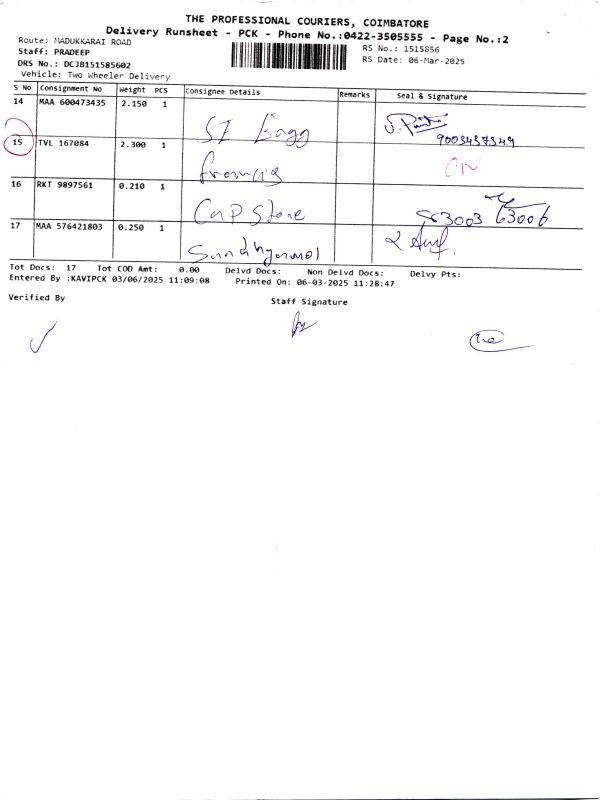 THE PROFESSIONAL COURIERS, COIMBATORE
Delivery Runsheet - PCK - Phone No.:0422-3505555 - Page No.:2
Route: MADUKKARAI ROAD
RS No.: 1515856
Staff: PRADEEP
RS Date: 06-Mar-2025
DRS No.: DCJB151585602
Vehicle: Two Wheeler Delivery
S No Consignment No Weight PCS Consignee Details Remarks Seal & Signature
14 MAA 600473435 2.150 1 SI
9003437349
15 TVL 167084 2.300 1 francis ON
16 RKT 9897561 0.210 1 Cap Stone
63006
17 MAA 576421803 0.250 1
Tot Docs: 17 Tot COD Amt: 0.00 Delvd Docs: Non Delvd Docs: Delvy Pts:
Entered By :KAVIPCK 03/06/2025 11:09:08 Printed On: 06-03-2025 11:28:47
Verified By
Staff Signature